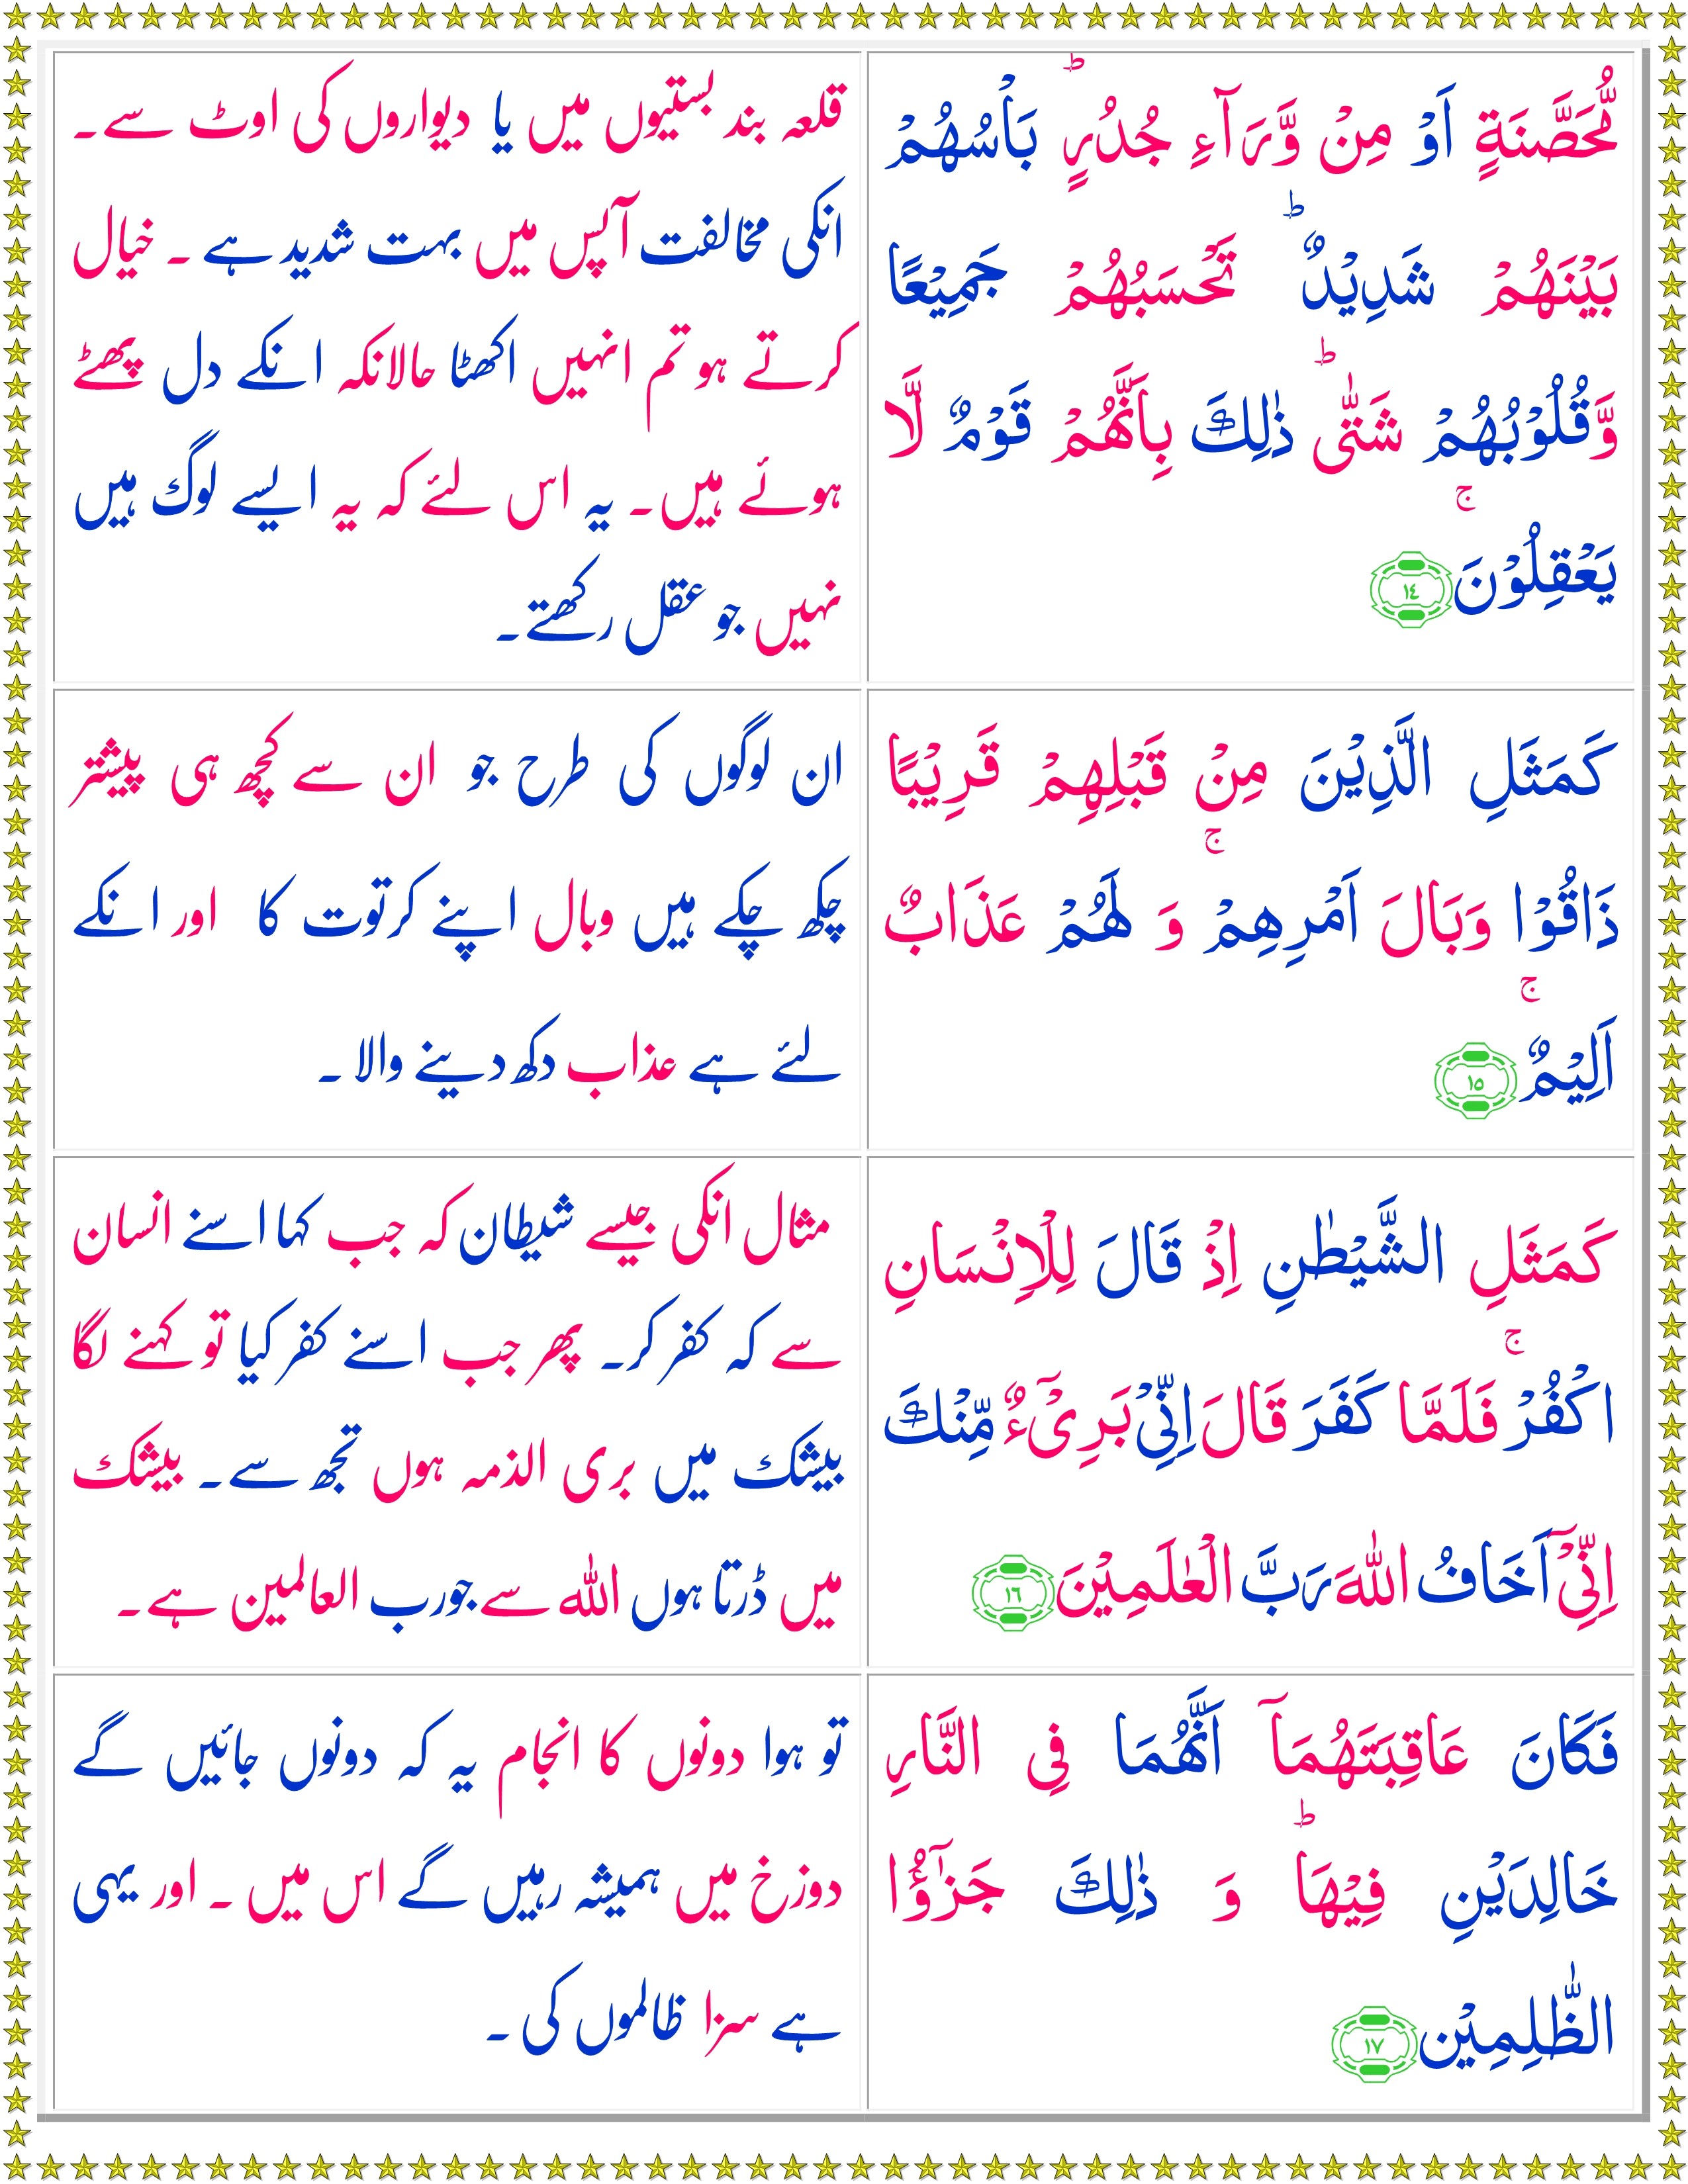 مُّحَصَّنَةٍ اَوْ مِنْ وَّرَآءِ جُدُرٍ ؕ بَاْسُهُمْ
بَيْنَهُمْ شَدِيْدٌ ؕ تَحْسَبُهُمْ جَمِيْعًا
وَّقُلُوْبُهُمْ شَتّٰى ؕ ذٰلِكَ بِاَنَّهُمْ قَوْمٌ لَّا
يَعْقِلُوْنَ ۚ ١٤
قلعہ بند بستیوں میں یا دیواروں کی اوٹ سے۔
انکی مخالفت آپس میں بہت شدید ہے ۔ خیال
کرتے ہو تم انہیں اکھٹا حالانکہ انکے دل پھٹے
ہوئے ہیں۔ یہ اس لئے کہ یہ ایسے لوگ ہیں
نہیں جو عقل رکھتے۔
كَمَثَلِ الَّذِيْنَ مِنْ قَبْلِهِمْ قَرِيْبًا
ذَاقُوْا وَبَالَ اَمْرِهِمْ ۚ وَ لَهُمْ عَذَابٌ
اَلِيْمٌ ۚ ١٥
ان لوگوں کی طرح جو ان سے کچھ ہی پیشتر
چکھ چکے ہیں وبال اپنے کرتوت کا اور انکے
لئے ہے عذاب دکھ دینے والا ۔
كَمَثَلِ الشَّيْطٰنِ اِذْ قَالَ لِلْاِنْسَانِ
اكْفُرْ ۚ فَلَمَّا كَفَرَ قَالَ اِنِّىْ بَرِىْٓءٌ مِّنْكَ
اِنِّىْۤ اَخَافُ اللّٰهَ رَبَّ الْعٰلَمِيْنَ ١٦
مثال انکی جیسے شیطان کہ جب کہا اسنے انسان
سے کہ کفر کر۔ پھر جب اسنے کفر کیا تو کہنے لگا
بیشک میں بری الذمہ ہوں تجھ سے۔ بیشک
میں ڈرتا ہوں اللہ سے جو رب العالمین ہے۔
فَكَانَ عَاقِبَتَهُمَاۤ اَنَّهُمَا فِى النَّارِ
خَالِدَيْنِ فِيْهَا ؕ وَ ذٰلِكَ جَزٰٓؤُا
الظّٰلِمِيْن ١٧
تو ہوا دونوں کا انجام یہ کہ دونوں جائیں گے
دوزخ میں ہمیشہ رہیں گے اس میں ۔ اور یہی
ہے سزا ظالموں کی ۔